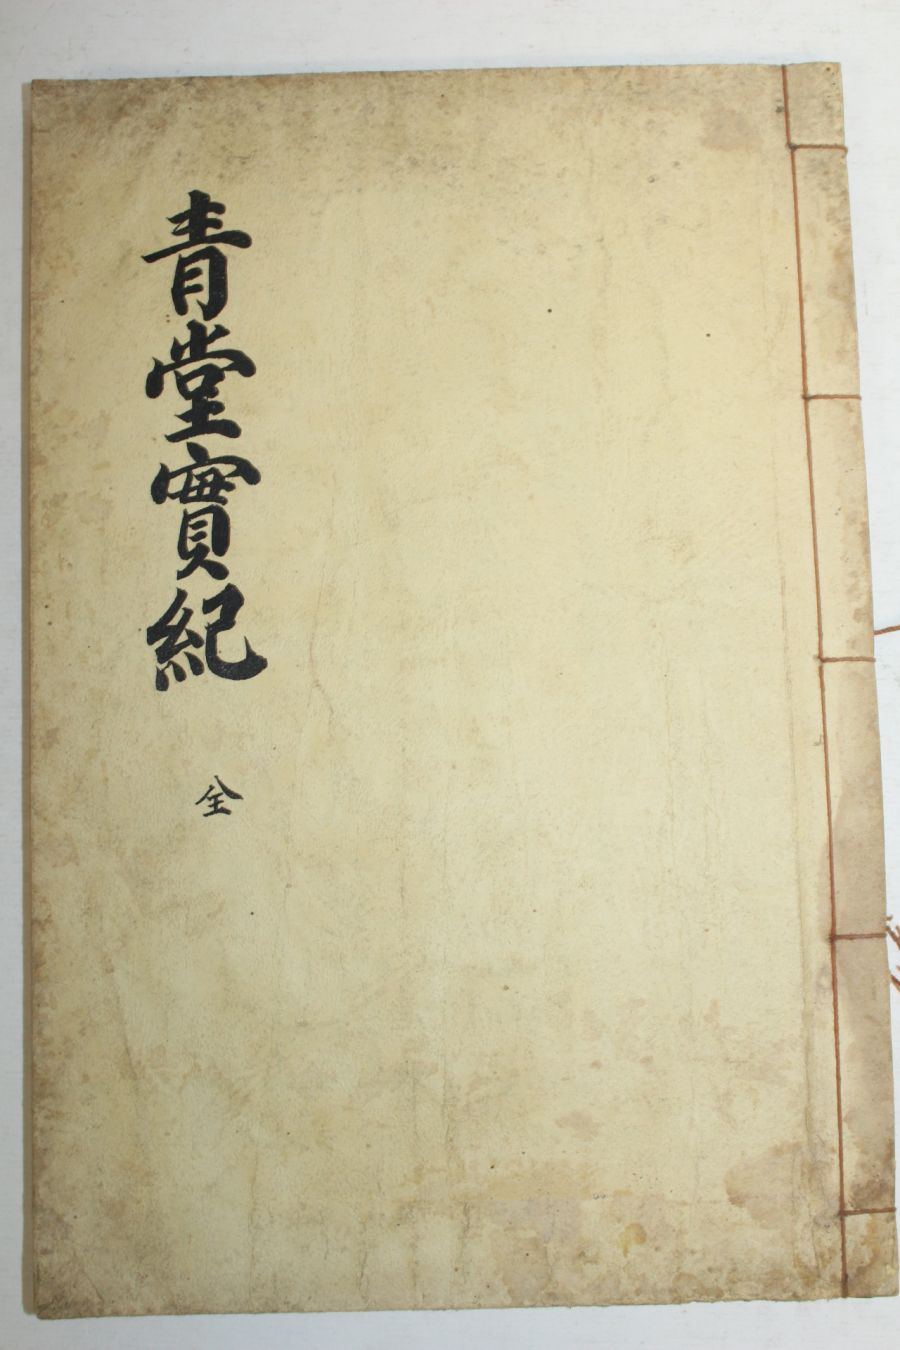 青堂實紀
全